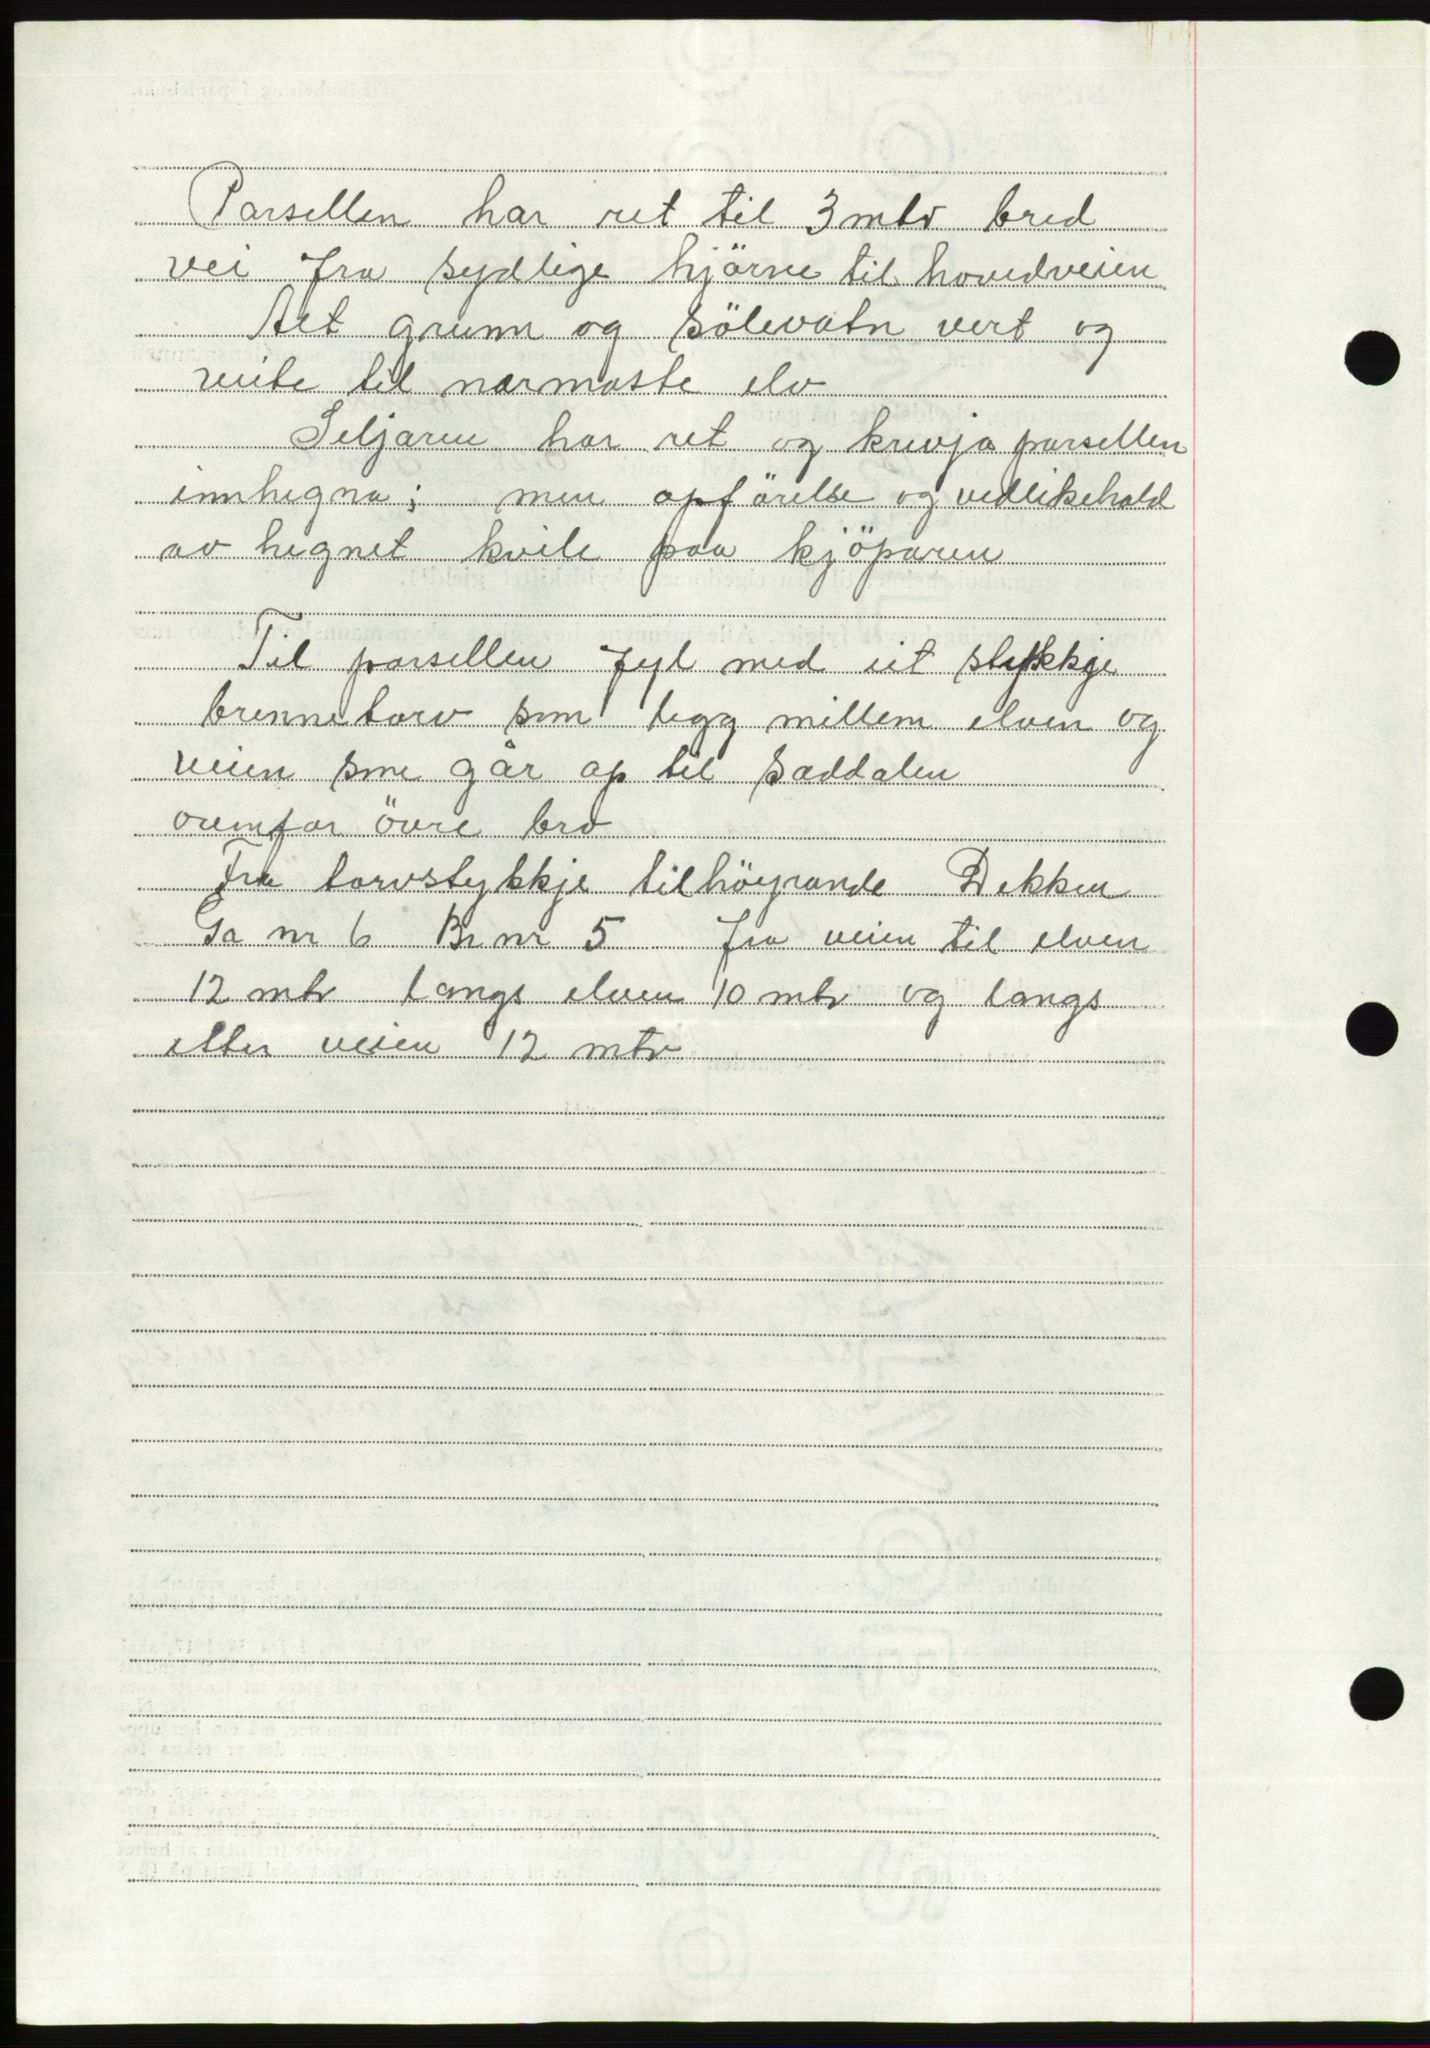 Parsellen har ret til 3 mtr bred
vei fra sydlige hjörne til hovedveien
Alt grunn og sölevatn vert og
veite til nærmaste elv
Seljaren har ret og krevja parsellen
innhegna; men opförelse og vedlikehald
av hegnet kvile paa kjöparen
Til parsellen fyl med eit stykkje
brennetorv som legg millem elven og
veien sme går op til Sæddalen
ovenfor övre bro
Fra torvstykkje tilhöyrande Dekken
Ga nr 6 Br nr 5 fra veien til elven
12 mtr langs elven 10 mtr og langs
etter veien 12 mtr